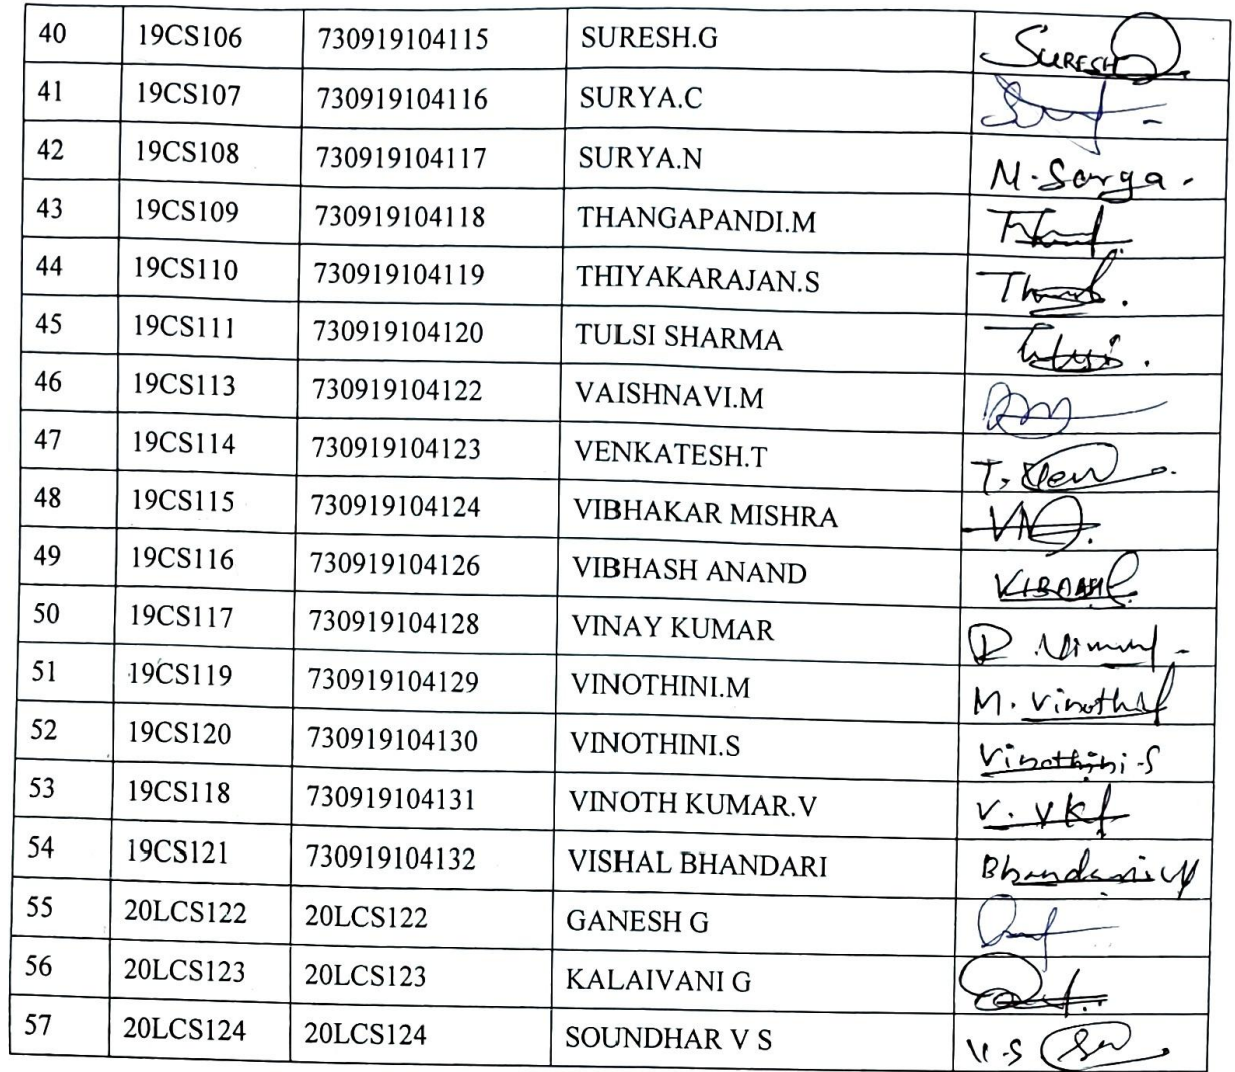 40 19CS106 730919104115 SURESH.G SURESH
41 19CS107 730919104116 SURYA.C
42 19CS108 730919104117 SURYA.N
43 19CS109 730919104118 THANGAPANDI.M
44 19CS110 730919104119 THIYAKARAJAN.S
45 19CS111 730919104120 TULSI SHARMA
46 19CS113 730919104122 VAISHNAVI.M
47 19CS114 730919104123 VENKATESH.T
48 19CS115 730919104124 VIBHAKAR MISHRA
49 19CS116 730919104126 VIBHASH ANAND
50 19CS117 730919104128 VINAY KUMAR
51 19CS119 730919104129 VINOTHINI.M
52 19CS120 730919104130 VINOTHINI.S Vinothini-S
53 19CS118 730919104131 VINOTH KUMAR.V
54 19CS121 730919104132 VISHAL BHANDARI
55 20LCS122 20LCS122 GANESH G
56 20LCS123 20LCS123 KALAIVANI G
57 20LCS124 20LCS124 SOUNDHAR V S